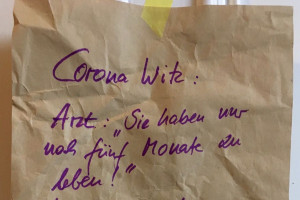 Corona Witz:
Arzt: „Sie haben nur
noch fünf Monate zu
leben!“